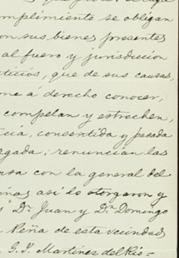 cumplimiento se obligan
con sus bienes presentes
al fuero y jurisdiccion
que de sus causas,
me á derecho conocer,
competan y estrechen,
consentida y pasada
gada: renuncian las
con la general del
así lo otorgaron y
Dn. Juan y Dn. Domingo
Peña de esta vecindad
G. Y. Martinez del Rio